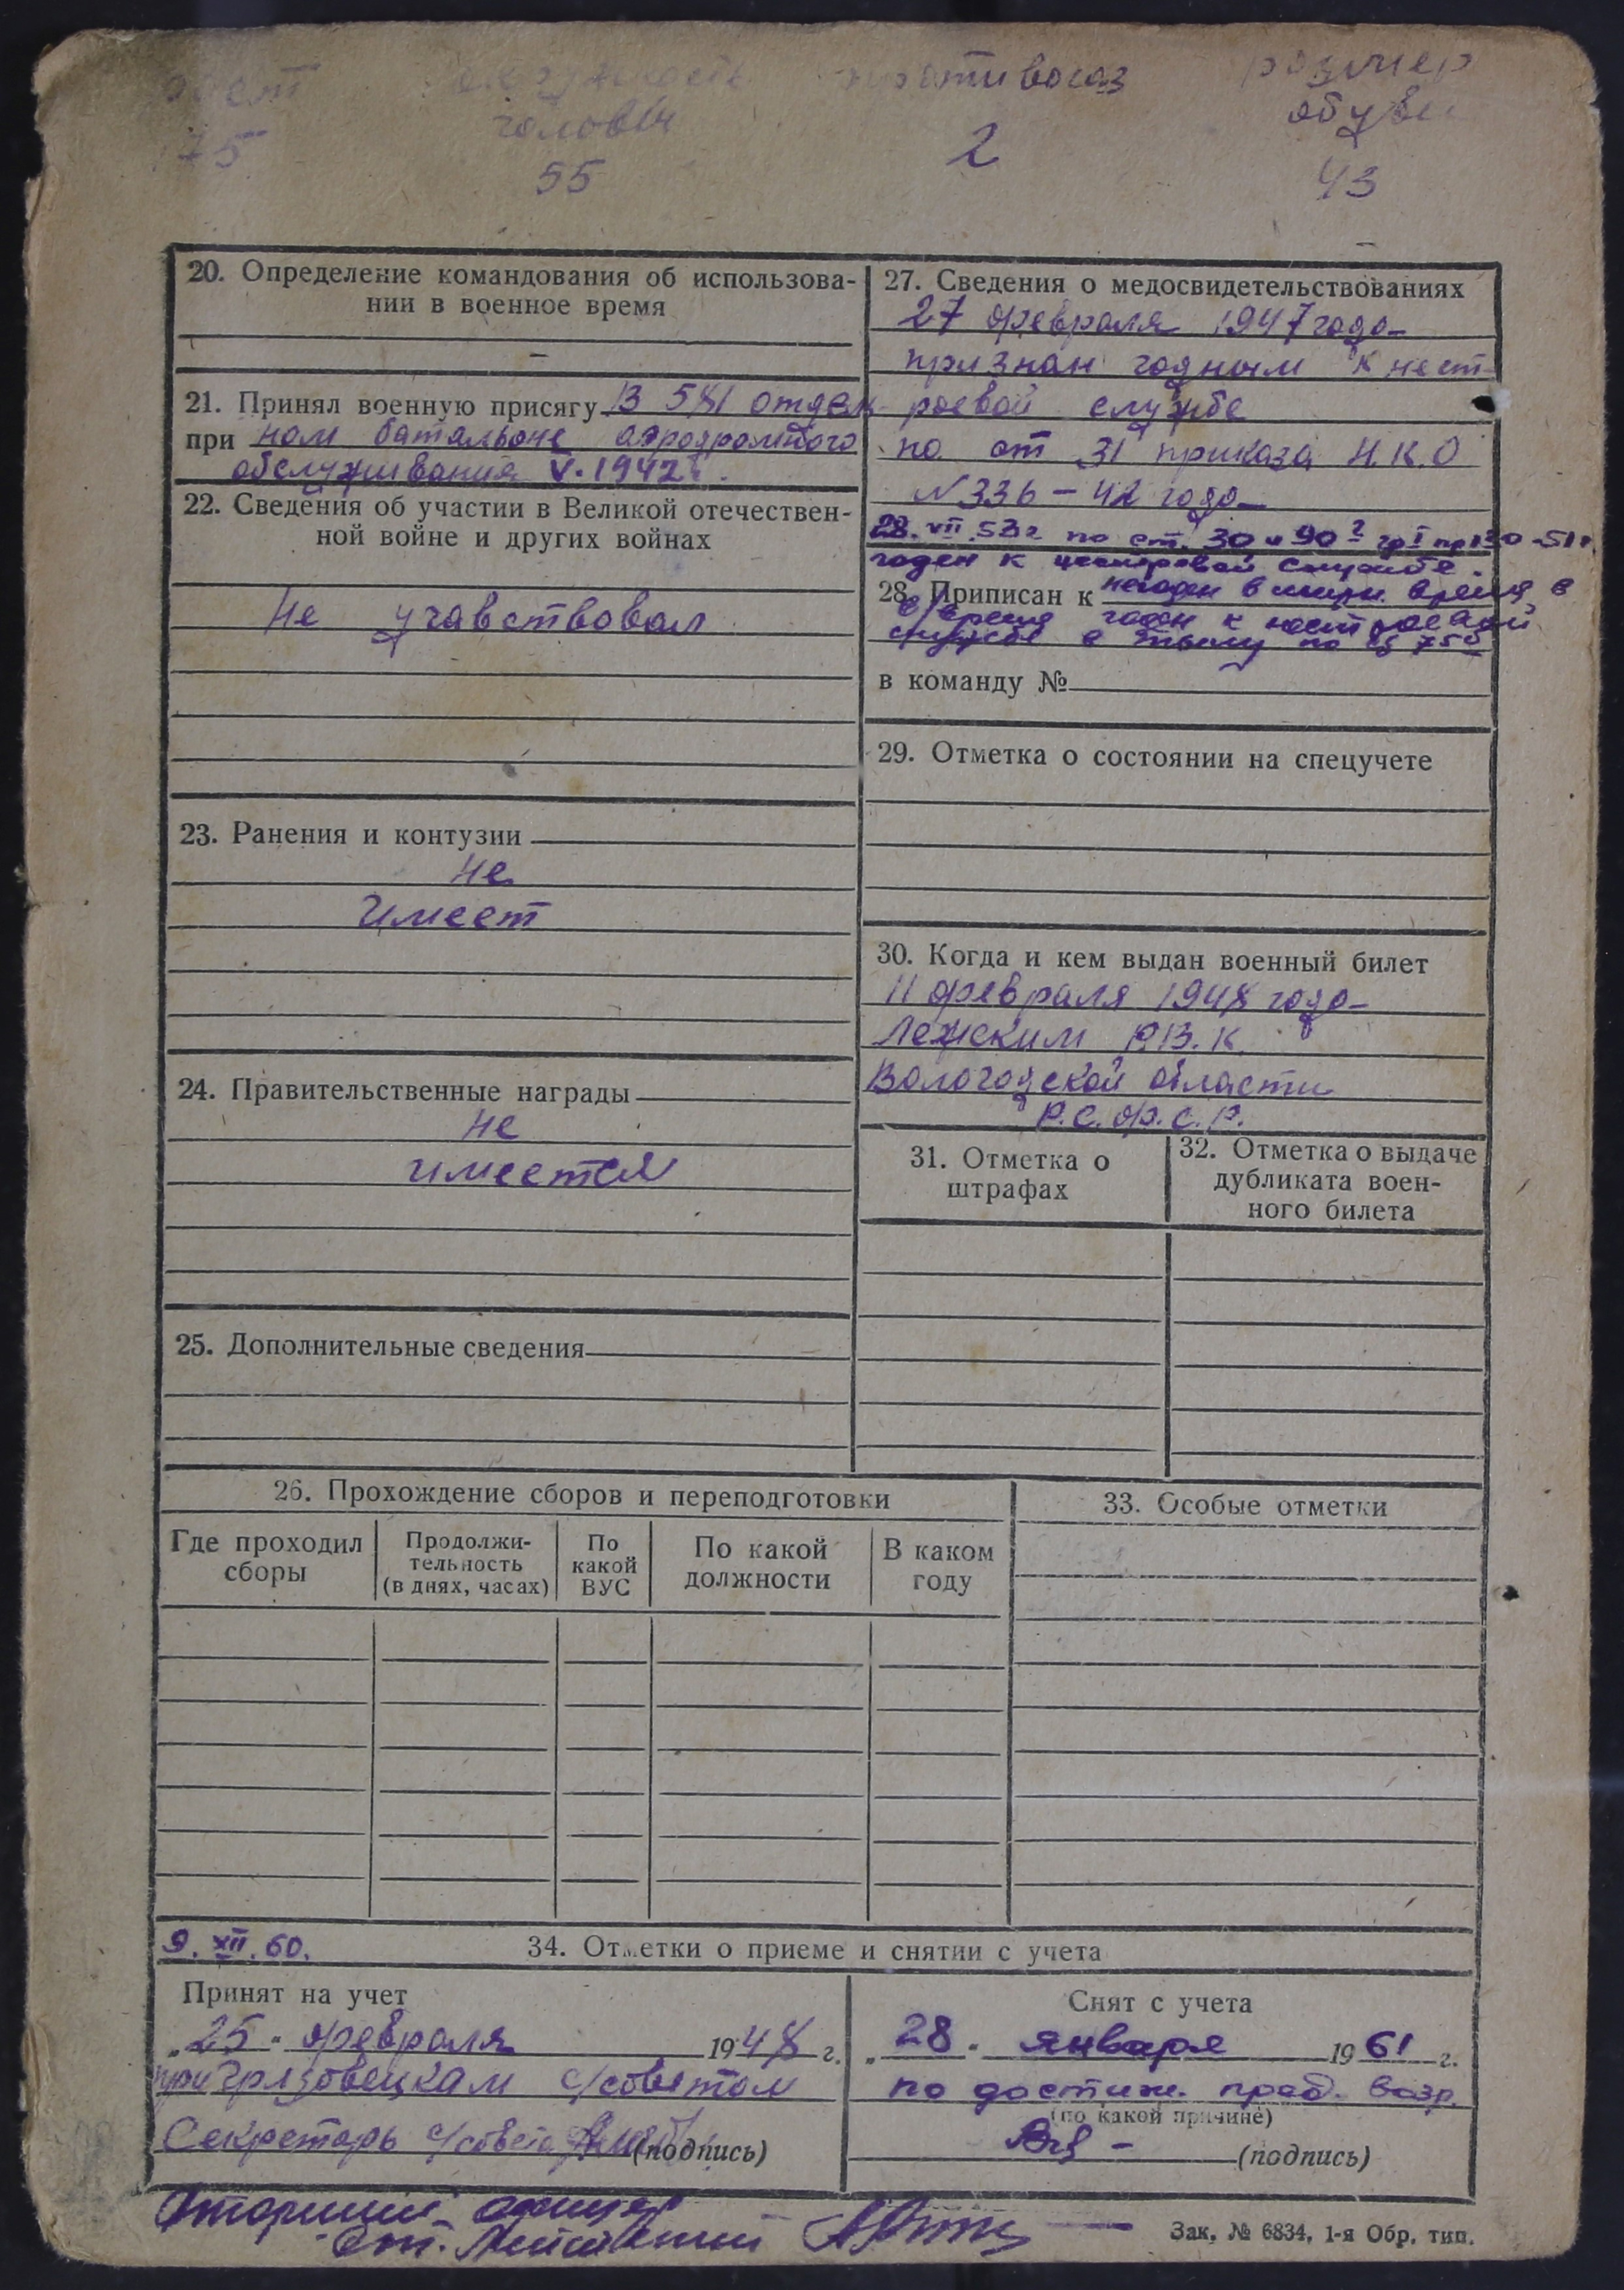 рост окружность противогаз размер
головы обуви
175 55 2 43
20. Определение командования об использова-
нии в военное время
21. Принял военную присягу В 581 отдель
при ном батальоне аэродромного
обслуживания V-1942 г.
22. Сведения об участии в Великой отечествен-
ной войне и других войнах
Не учавствовал
23. Ранения и контузии
Не
имеет
24. Правительственные награды
Не
имеется
25. Дополнительные сведения
27. Сведения о медосвидетельствованиях
27 февраля 1947 года
признан годным к нест-
роевой службе
по ст 31 приказа Н.К.О
N 336 - 42 года
28. VII 53г по ст. 30 и 90 2 гр I пр 130 -51г
годен к нестроевой службе.
28. Приписан к негоден в мирн. время в
в/время годен к нестроевой
службе в тылу по
в команду №
29. Отметка о состоянии на спецучете
30. Когда и кем выдан военный билет
11 февраля 1948 года
Лежским Р.В.К.
Вологодской области
Р.С.Ф.С.Р.
31. Отметка о
штрафах
32. Отметка о выдаче
дубликата воен-
ного билета
26. Прохождение сборов и переподготовки
Где проходил
сборы
Продолжи-
тельность
(в днях, часах)
По
какой
ВУС
По какой
должности
В каком
году
33. Особые отметки
9. XII. 60.
34. Отметки о приеме и снятии с учета
Принят на учет
„25" февраля 1948 г.
при Грязовецкам с/советом
Секретарь с/совета (подпись)
Снят с учета
„28" января 1961 г.
по достиж. пред. возр.
(по какой причине)
(подпись)
Зак. № 6834, 1-я Обр. тип.